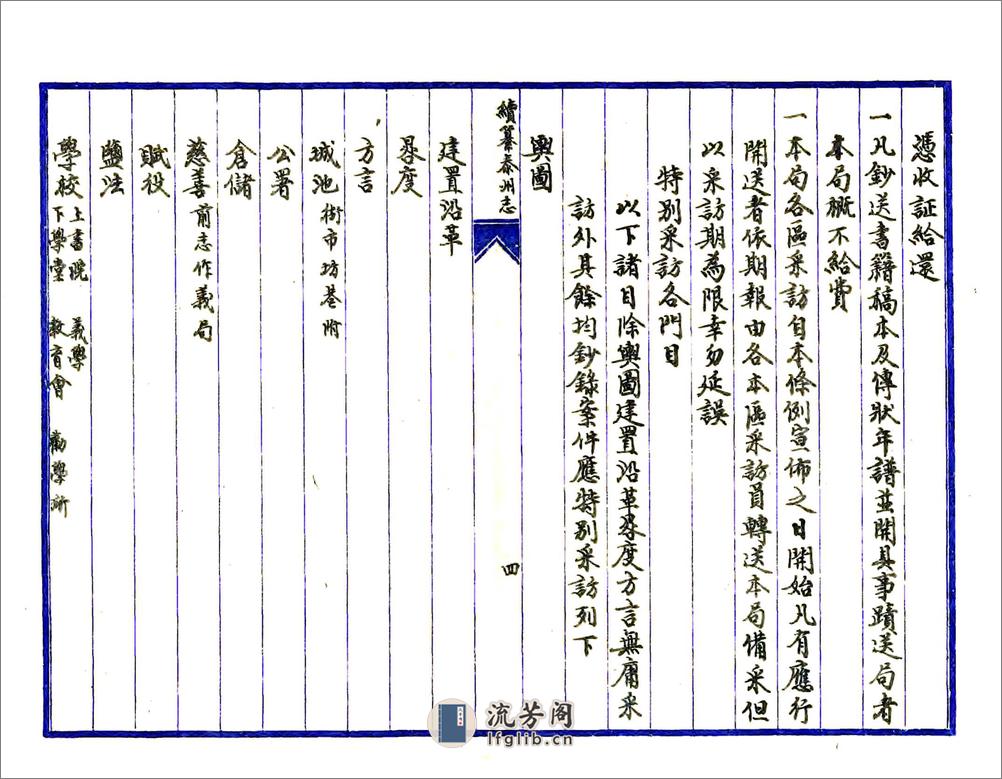 憑收証給還
一凡鈔送書籍稿本及傳狀年譜並開具事蹟送局者
本局概不給費
一本局各區采訪自本條例宣佈之日開始凡有應行
開送者依期報由各本區采訪員轉送本局備采但
以采訪期為限幸勿延誤
特別采訪各門目
以下諸目除輿圖建置沿革晷度方言無庸采
訪外其餘均鈔錄案件應特別采訪列下
輿圖
續纂泰州志
四
建置沿革
晷度
方言
城池 街市坊巷附
公署
倉儲
慈善 前志作義局
賦役
鹽法
學校 上書院 義學
下學堂 教育會 勸學所
流芳阁
lfglib.cn